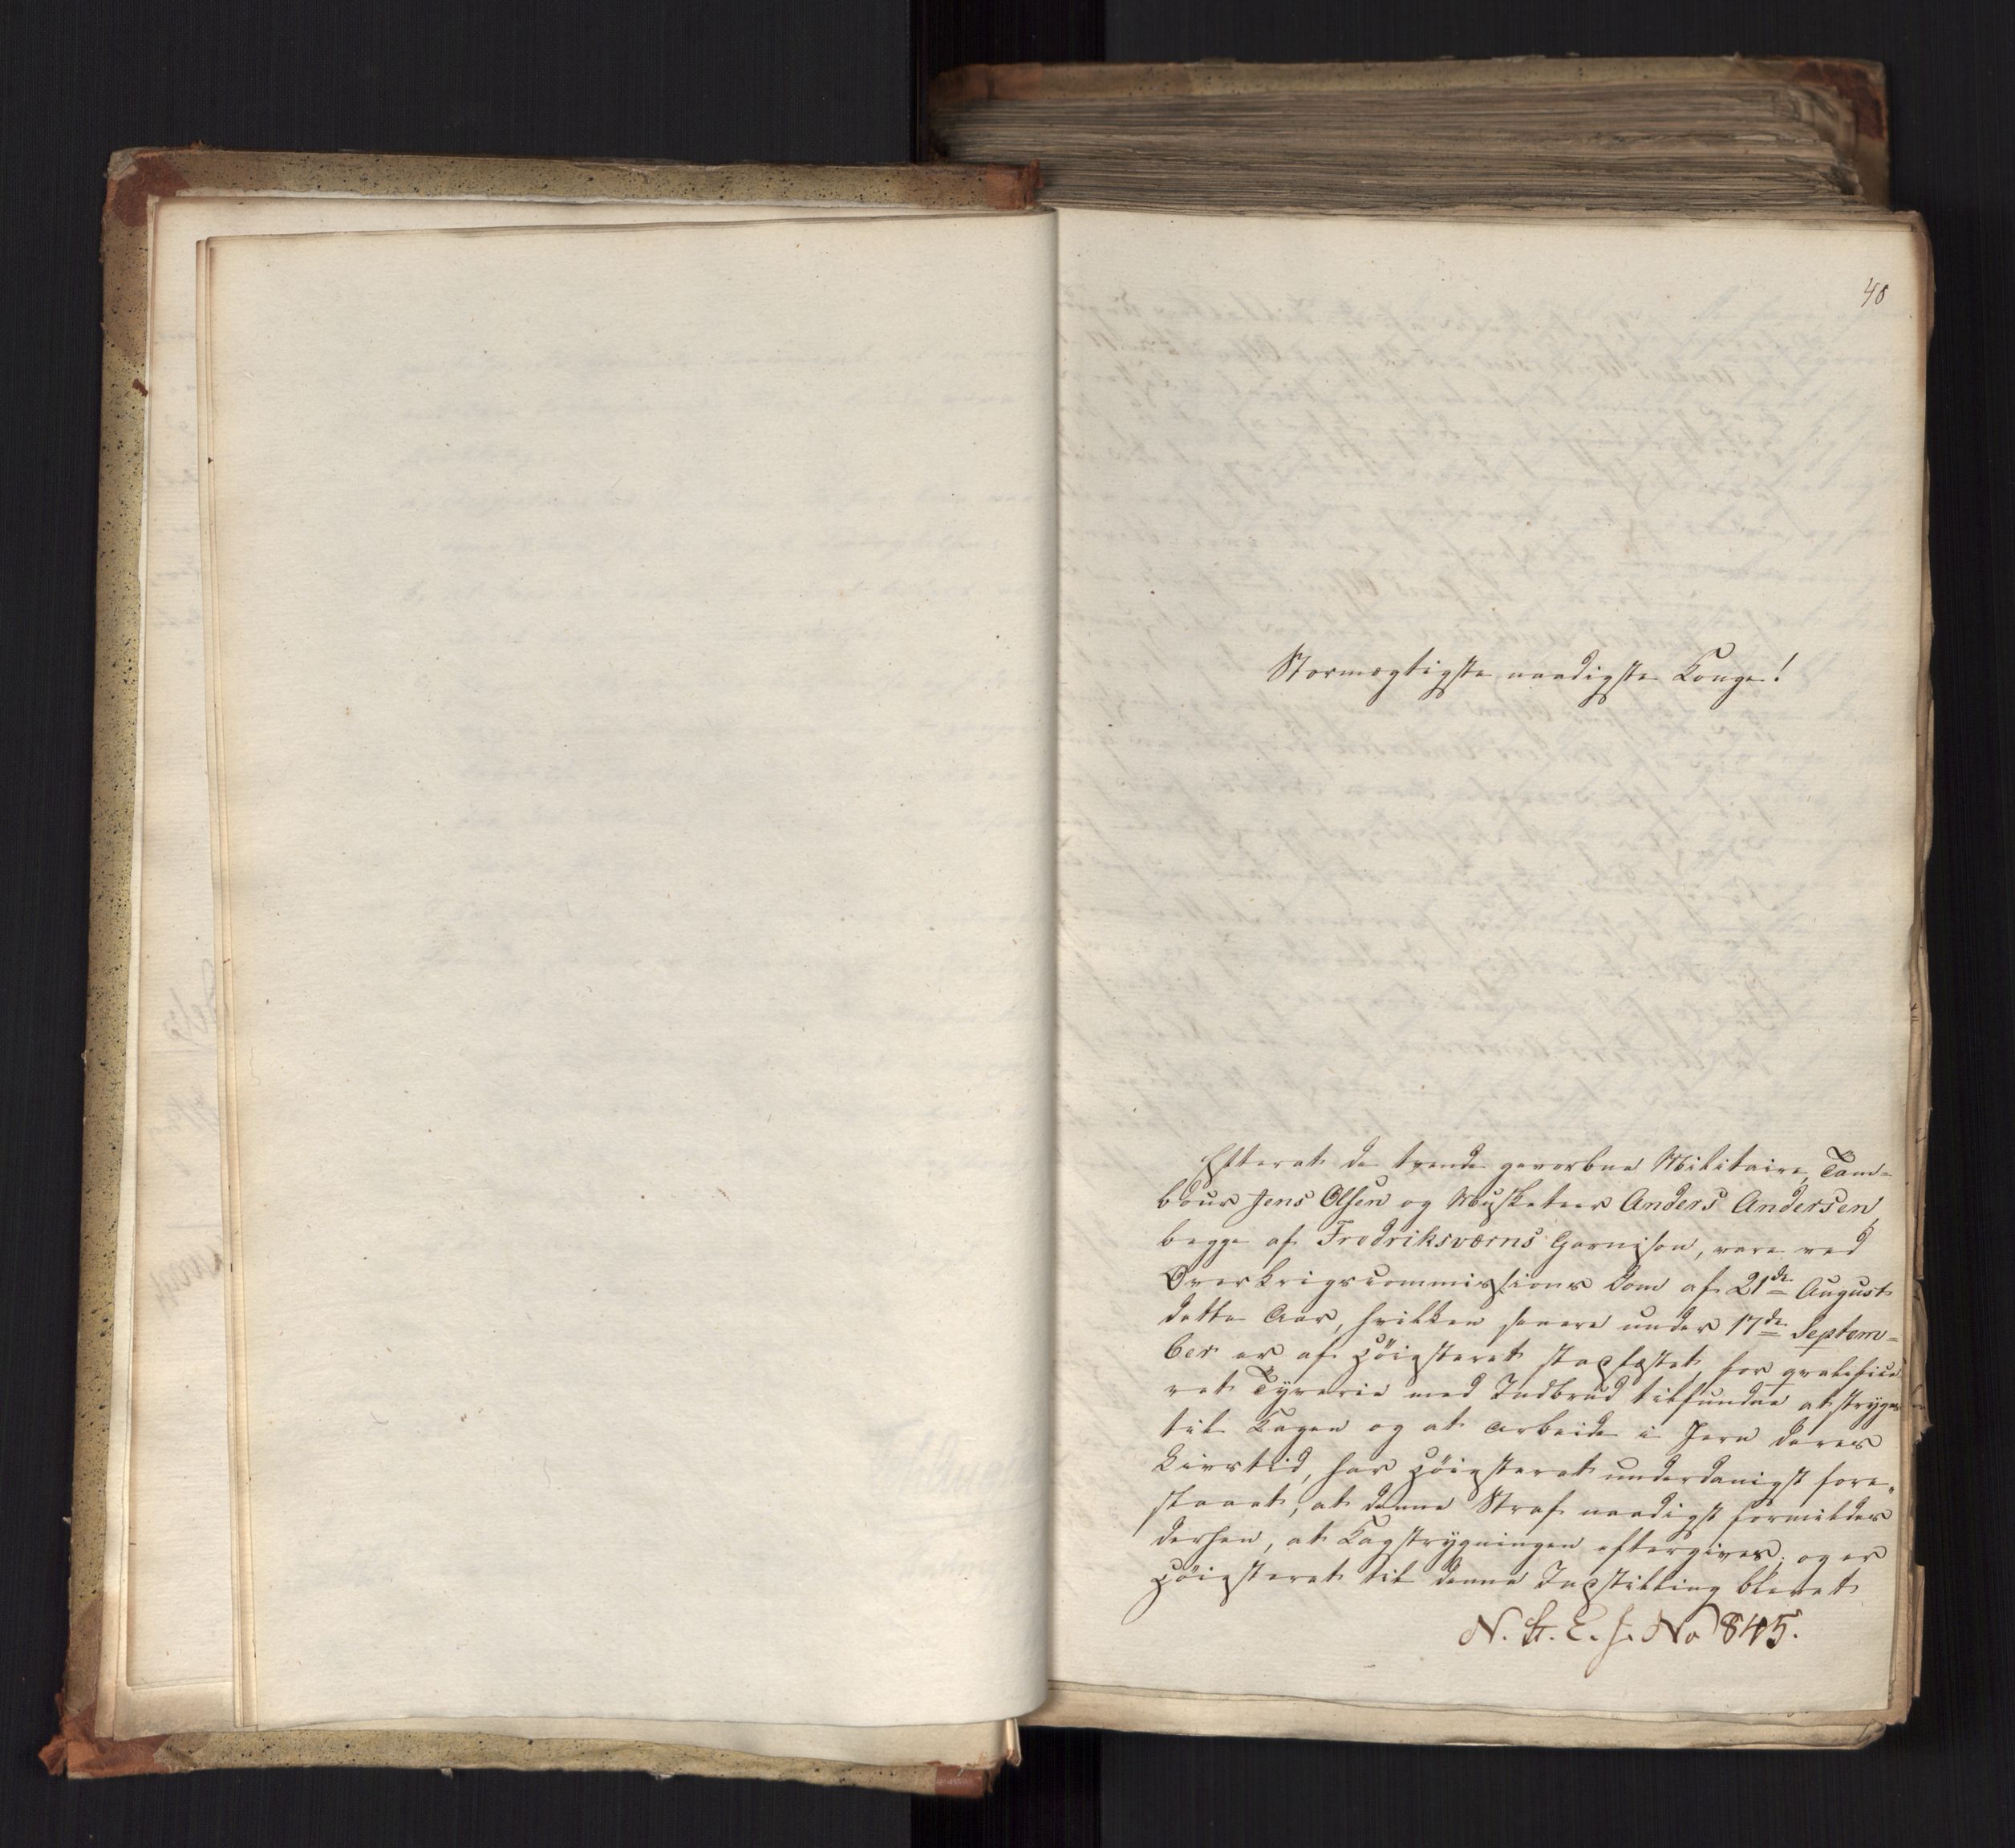 40
Stormægtigste naadigste Konge!
Efterat de tvende gevorbne Militaire, Tam-
bour Jens Olsen og Musketeer Anders Andersen,
begge af Fredriksværns Garnison, vare ved
Overkrigscommissions Dom af 21de August
dette Aar, hvilken senere under 17de Septem-
ber er af Höiesteret stadfæstet, for qvalifice
ret Tyverie med Indbrud tilfundne at stryges
til Kagen og at arbeide i Jern deres
Livstid, har Höiesteret underdanigst fore-
slaaet, at denne Straf naadigst formildes
derhen, at Kagstrygningen eftergives; og er
Höiesteret til denne Indstilling blevet
N. St. E. J. No 845.